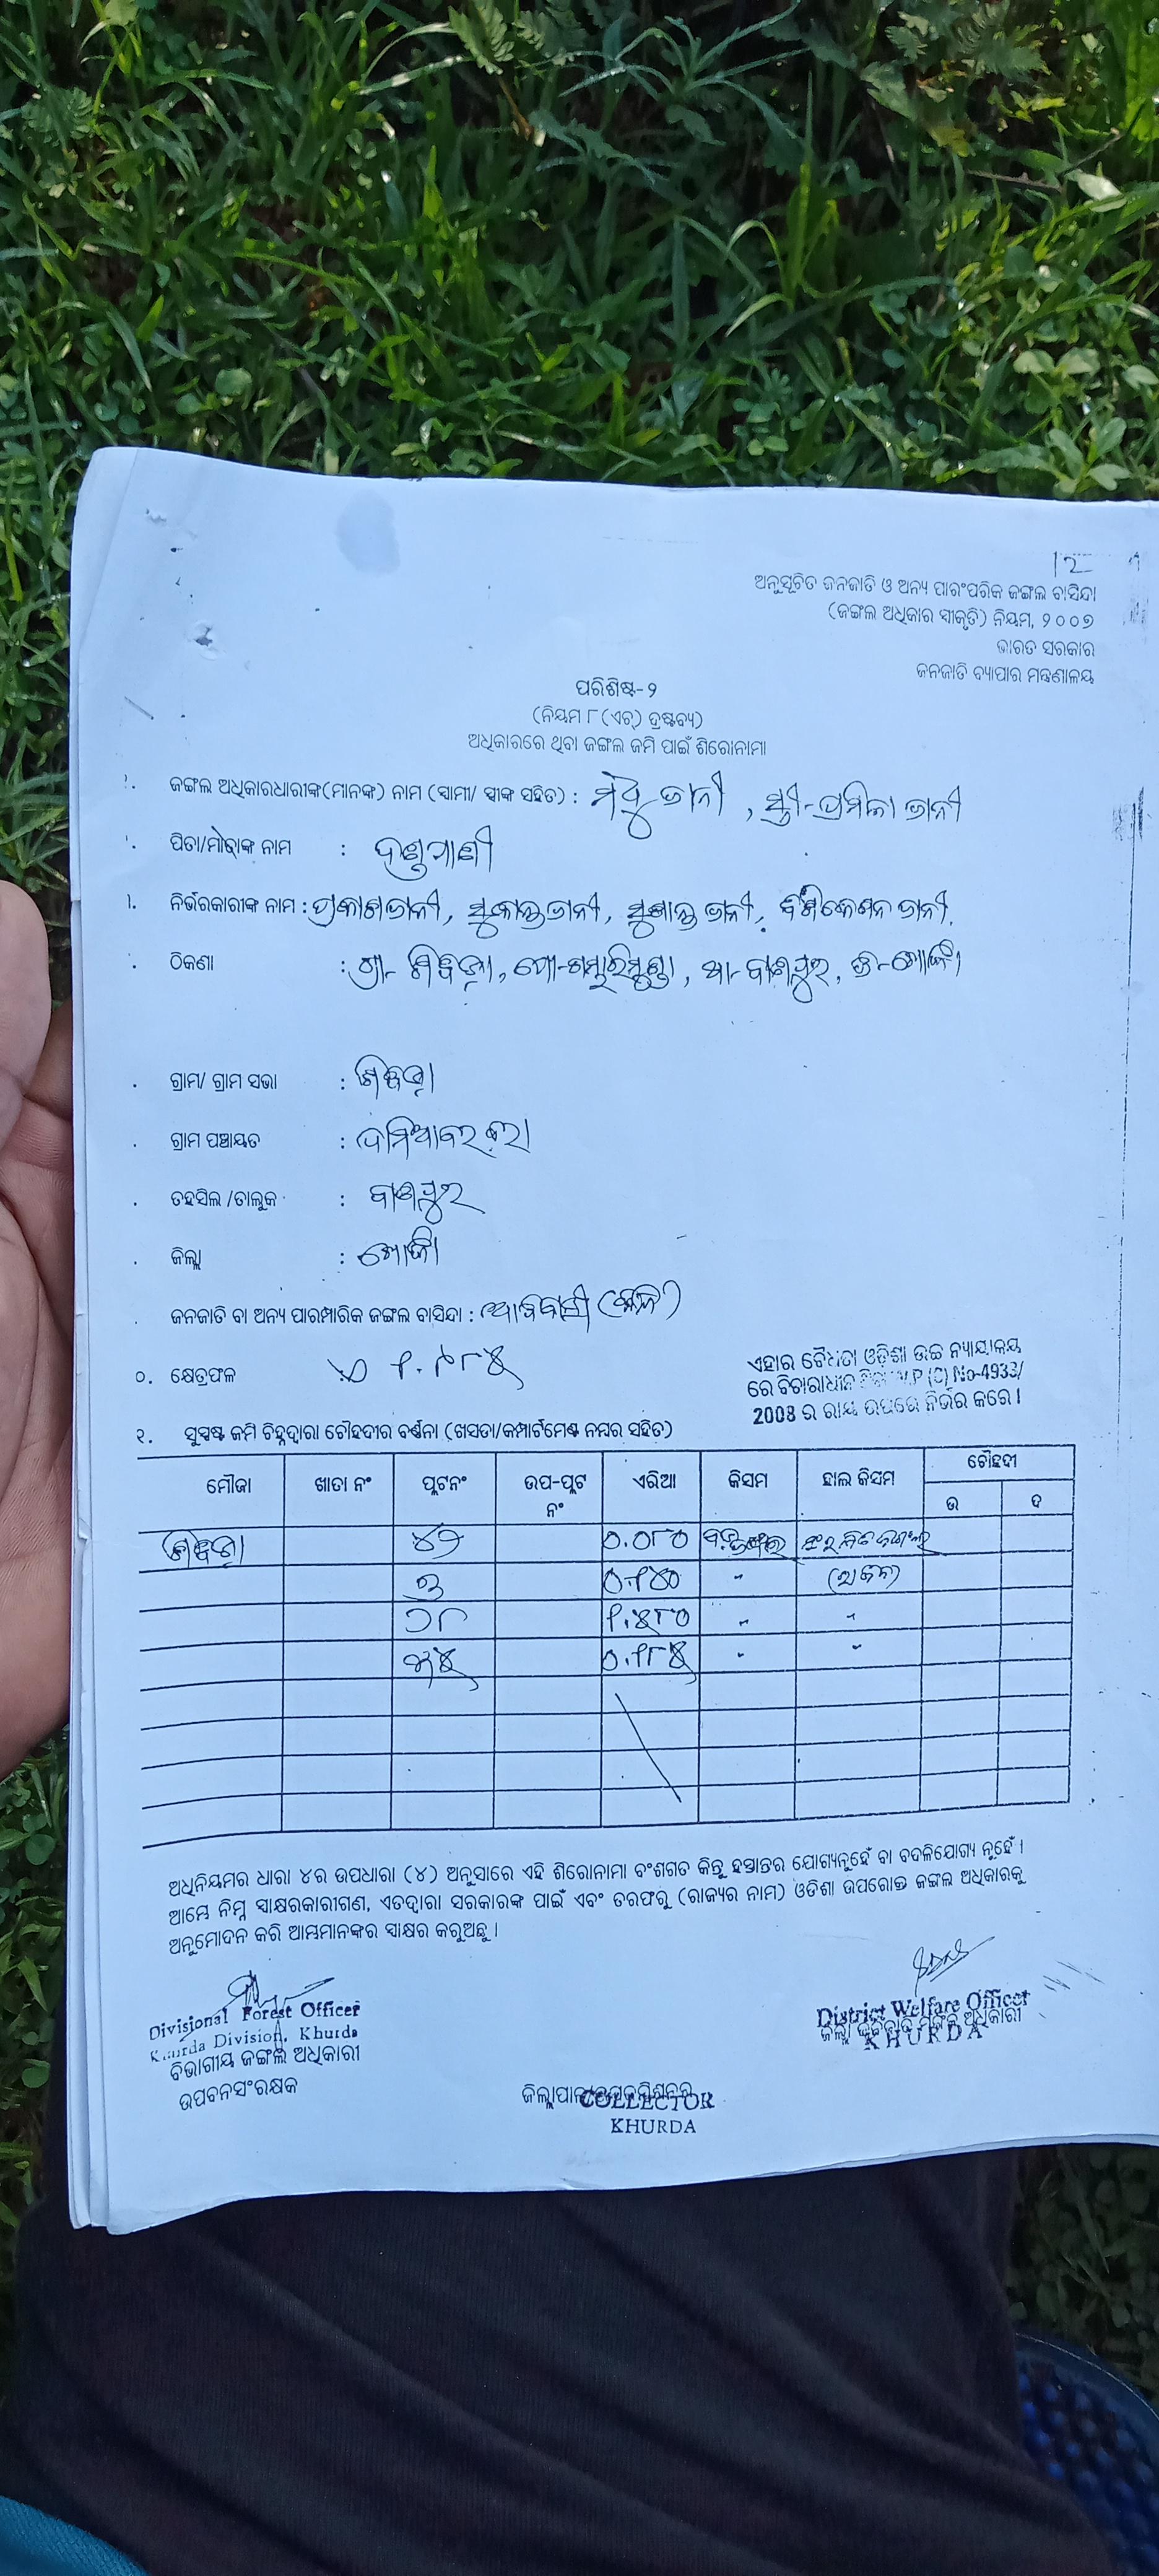 12
ଅନୁସୂଚିତ ଜନଜାତି ଓ ଅନ୍ୟ ପାରଂପରିକ ଜଙ୍ଗଲ ବାସିନ୍ଦା
(ଜଙ୍ଗଲ ଅଧିକାର ସ୍ୱୀକୃତି) ନିୟମ, ୨୦୦୭
ଭାରତ ସରକାର
ଜନଜାତି ବ୍ୟାପାର ମନ୍ତ୍ରଣାଳୟ
ପରିଶିଷ୍ଟ-୨
(ନିୟମ ୮(ଏଚ୍) ଦ୍ରଷ୍ଟବ୍ୟ)
ଅଧିକାରରେ ଥିବା ଜଙ୍ଗଲ ଜମି ପାଇଁ ଶିରୋନାମା
ଜଙ୍ଗଲ ଅଧିକାରଧାରୀଙ୍କ(ମାନଙ୍କ) ନାମ (ସ୍ୱାମୀ/ ସ୍ତ୍ରୀଙ୍କ ସହିତ) : ମଧୁ ଜାନୀ, ସ୍ତ୍ରୀ-ପ୍ରମିଳା ଜାନୀ
ପିତା/ମାତାଙ୍କ ନାମ : ଦଣ୍ଡପାଣୀ
ନିର୍ଭରକାରୀଙ୍କ ନାମ : ପ୍ରକାଶ ଜାନୀ, ସୁକାନ୍ତ ଜାନୀ, ସୁଶାନ୍ତ ଜାନୀ, ଜାନୀ
ଠିକଣା : ଗ୍ରା- ପୋ- ଥା- ବାଣପୁର, ଜି-ଖୋର୍ଦ୍ଧା
ଗ୍ରାମ/ ଗ୍ରାମ ସଭା :
ଗ୍ରାମ ପଞ୍ଚାୟତ :
ତହସିଲ /ତାଲୁକ : ବାଣପୁର
ଜିଲ୍ଲା : ଖୋର୍ଦ୍ଧା
ଜନଜାତି ବା ଅନ୍ୟ ପାରମ୍ପାରିକ ଜଙ୍ଗଲ ବାସିନ୍ଦା : ଆଦିବାସୀ
୦. କ୍ଷେତ୍ରଫଳ
ଏହାର ବୈଧତା ଓଡ଼ିଶା ଉଚ୍ଚ ନ୍ୟାୟାଳୟ
ରେ ବିଚାରାଧୀନ W.P (C) No-4933/
2008 ର ରାୟ ଉପରେ ନିର୍ଭର କରେ ।
୧. ସୁସ୍ପଷ୍ଟ ଜମି ଚିହ୍ନଦ୍ୱାରା ଚୌହଦୀର ବର୍ଣ୍ଣନା (ଖସଡା/କମ୍ପାର୍ଟମେଣ୍ଟ ନମ୍ବର ସହିତ)
ମୌଜା ଖାତା ନଂ ପ୍ଲଟନଂ ଉପ-ପ୍ଲଟ ନଂ ଏରିଆ କିସମ ହାଲ କିସମ ଚୌହଦୀ
ଉ ଦ
୪୨ ୦.୦୮୦
୩ ୦.୧୪୦ "
୨୮ " "
୦.୧୮୫ " "
ଅଧିନିୟମର ଧାରା ୪ର ଉପଧାରା (୪) ଅନୁସାରେ ଏହି ଶିରୋନାମା ବଂଶଗତ କିନ୍ତୁ ହସ୍ତାନ୍ତର ଯୋଗ୍ୟନୁହେଁ ବା ବଦଳିଯୋଗ୍ୟ ନୁହେଁ ।
ଆମ୍ଭେ ନିମ୍ନ ସ୍ୱାକ୍ଷରକାରୀଗଣ, ଏତଦ୍ୱାରା ସରକାରଙ୍କ ପାଇଁ ଏବଂ ତରଫରୁ (ରାଜ୍ୟର ନାମ) ଓଡିଶା ଉପରୋକ୍ତ ଜଙ୍ଗଲ ଅଧିକାରକୁ
ଅନୁମୋଦନ କରି ଆମ୍ଭମାନଙ୍କର ସ୍ୱାକ୍ଷର କରୁଅଛୁ ।
Divisional Forest Officer
Khurda Division, Khurda
ବିଭାଗୀୟ ଜଙ୍ଗଲ ଅଧିକାରୀ
ଉପବନସଂରକ୍ଷକ
District Welfare Officer
ଜିଲ୍ଲା ମଙ୍ଗଳ ଅଧିକାରୀ
KHURDA
ଜିଲ୍ଲାପାଳ
COLLECTOR
KHURDA